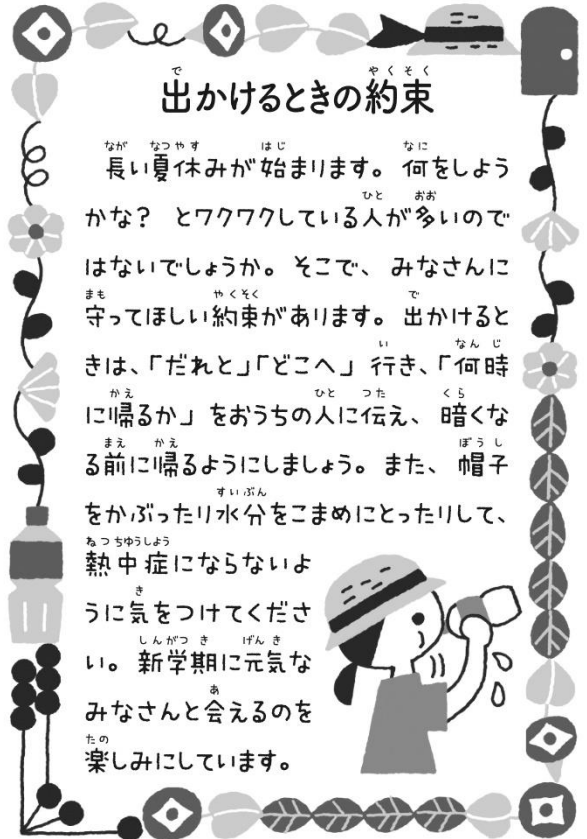 出かけるときの約束
長い夏休みが始まります。何をしよう
かな？　とワクワクしている人が多いので
はないでしょうか。そこで、みなさんに
守ってほしい約束があります。出かけると
きは、「だれと」「どこへ」行き、「何時
に帰るか」をおうちの人に伝え、暗くな
る前に帰るようにしましょう。また、帽子
をかぶったり水分をこまめにとったりして、
熱中症にならないよ
うに気をつけてくださ
い。新学期に元気な
みなさんと会えるのを
楽しみにしています。